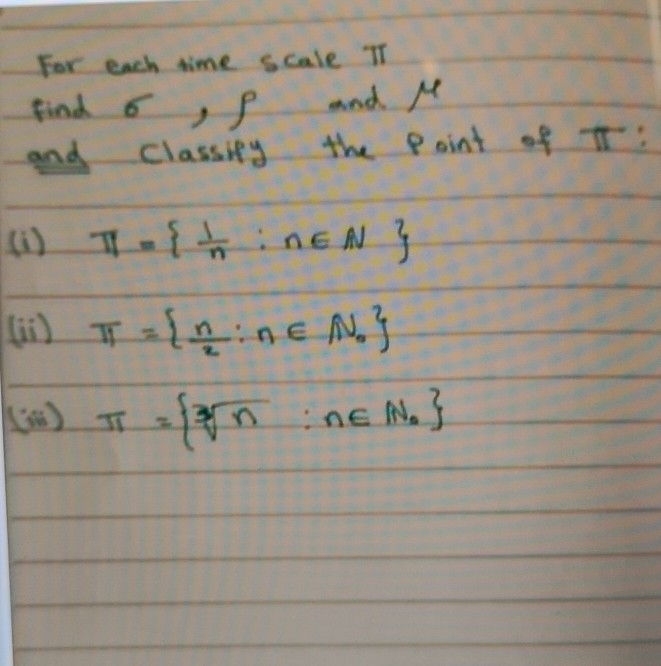 For each time scale π
find σ , ρ and μ
and Classify the Point of π :
(i) π = { 1/n : n ∈ N }
(ii) π = { n/2 : n ∈ N₀ }
(iii) π = { ∛n : n ∈ N₀ }